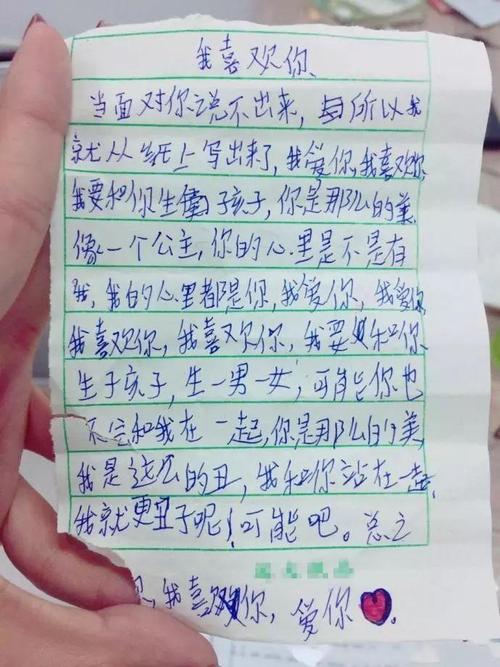 我喜欢你
当面对你说不出来,所以我
就从纸上写出来了,我爱你,我喜欢你
我要和你生孩子,你是那么的美
像一个公主,你的心里是不是有
我,我的心里都是你,我爱你,我爱你
我喜欢你,我喜欢你,我要和你
生子孩子,生一男一女,可能你也
不会和我在一起,你是那么的美,
我是这么的丑,我和你站在一起,
我就更丑了呢!可能吧。总之
我喜欢你,爱你